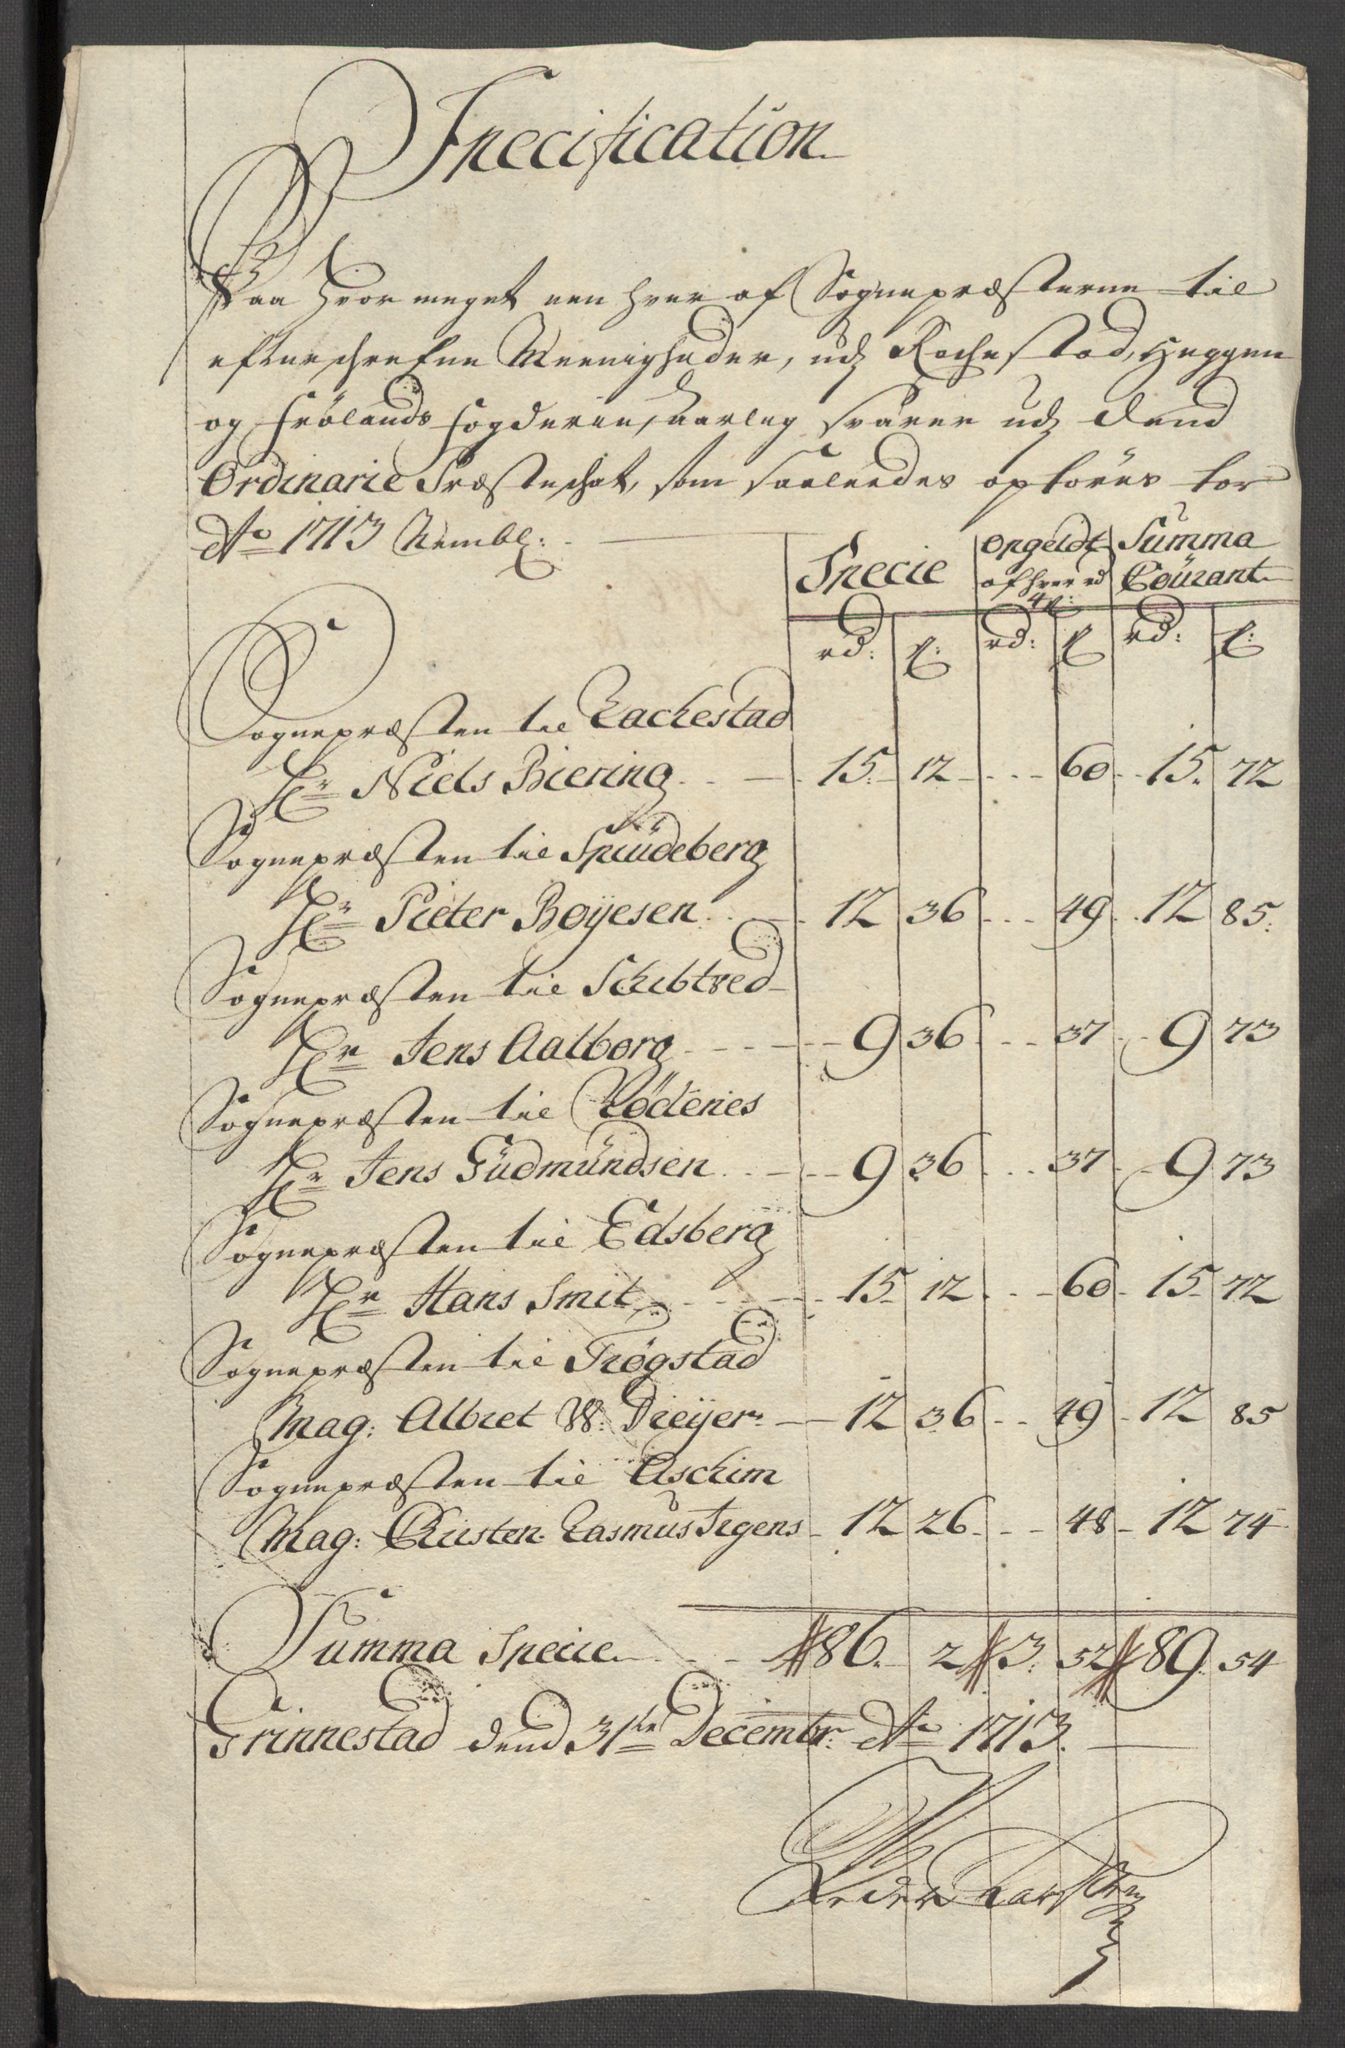 Specification
Paa hvor meget een hver af Sognepræsterne til
efterschrefne Meenigheder, udj Rachestad, Heggen
og Frölands fogderie, aarlig svarer udj dend
Ordinarie Præsteschat, som saaledes opföres for
Ao 1713 Nembl:
Specie Opgeldt Summa
af hver rd Courant
4 s:
rd: s: rd: s rd: s:
Sognepræsten til Rachestad
Hr Niels Biering 15 12 60 15 72
Sognepræsten til Spüdeberg
Hr Pieter Boÿesen 12 36 49 12 85
Sognepræsten til Schibtved
Hr Jens Aalborg 9 36 37 9 73
Sognepræsten til Rödenes
Hr Jens Güdmündsen 9 36 37 9 73
Sognepræsten til Edsberg
Hr Hans Smit 15 12 60 15 72
Sognepræsten til Trögstad
Mag: Albret W: Dreÿer 12 36 49 12 85
Sognepræsten til Aschim
Mag: Christen Rasmus 12 26 48 12 74
Summa Specie 86 2 3 52 89 54
Grinnestad dend 31te Decembr: Ao 1713.
Peder Karsten